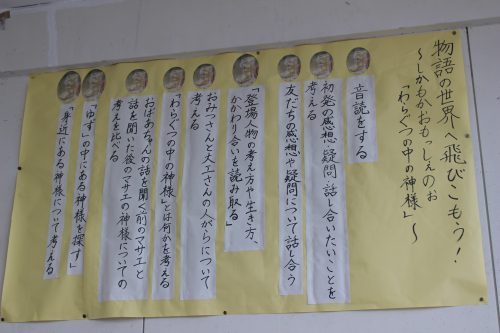 物語の世界へ飛びこもう！
～しかもかおもっしぇのぉ
「わらぐつの中の神様」～
音読をする
初発の感想・疑問・話し合いたいことを
考える
友だちの感想や疑問について話し合う
「登場人物の考え方や生き方、
かかわり合いを読み取る」
おみつさんと大工さんの人がらについて
考える
「わらぐつの中の神様」とは何かを考える
おばあちゃんの話を聞く前のマサエと
話を聞いた後のマサエの神様についての
考えを比べる
「ゆず」の中にある神様を探す」
「身近にある神様について考える